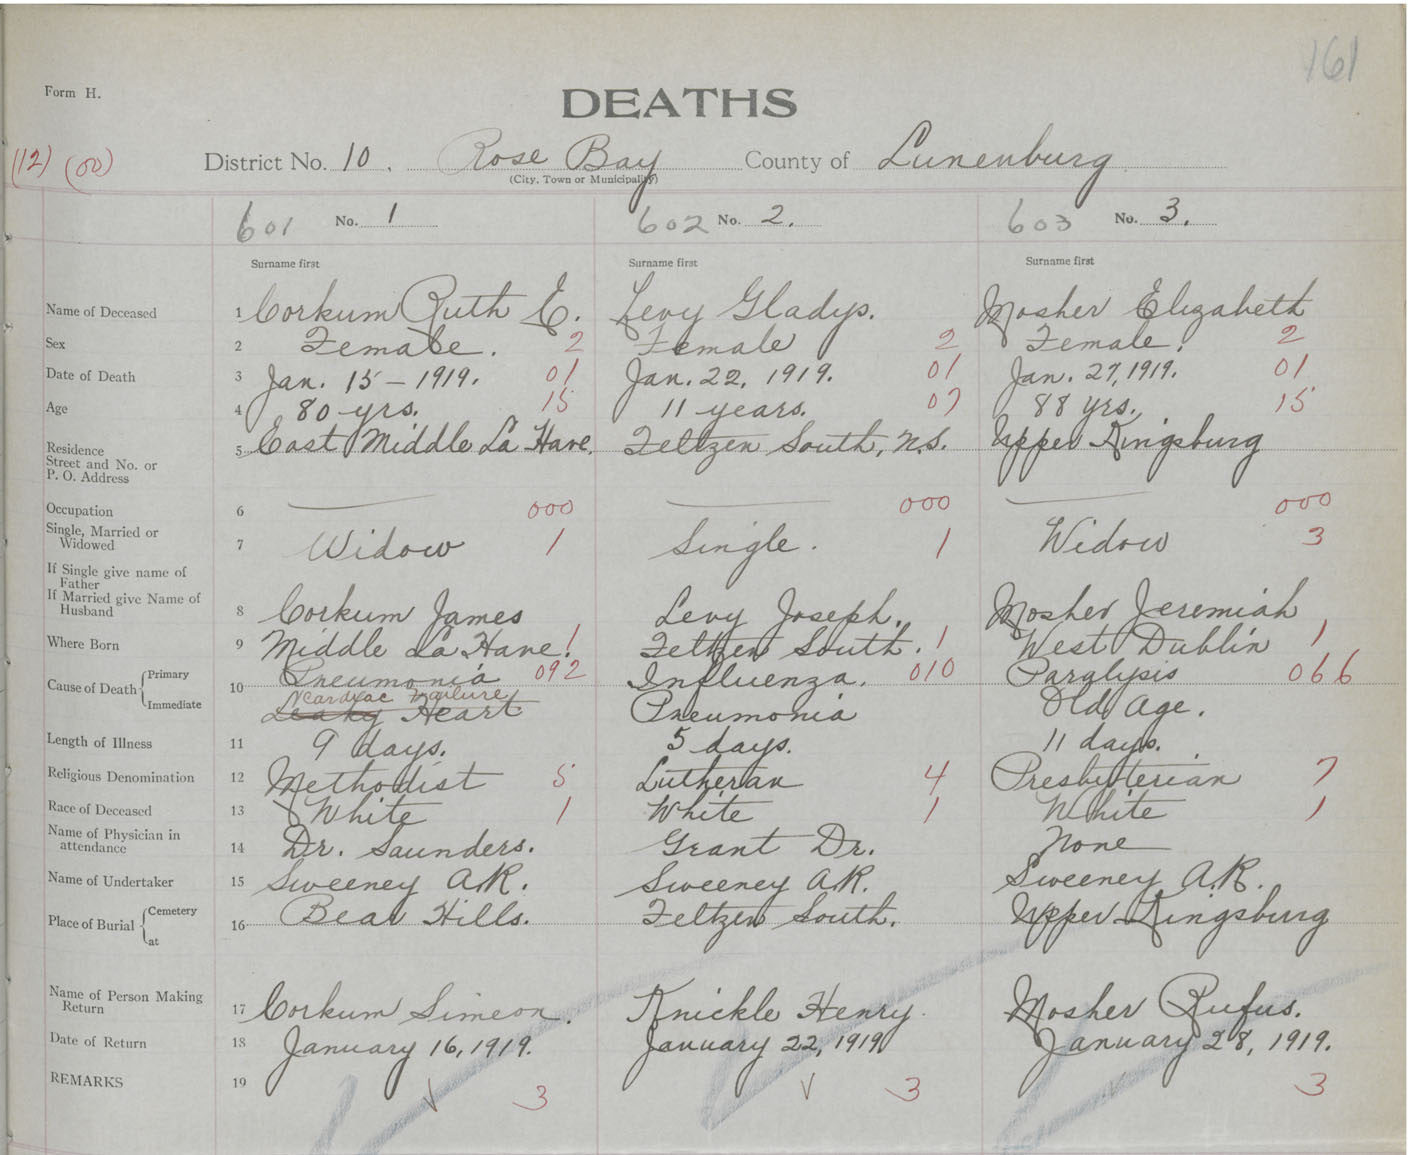 161
Form H.
DEATHS
(12) (00) District No. 10. Rose Bay County of Lunenburg
(City, Town or Municipality)
601 No. 1 602 No. 2. 603 No. 3.
Surname first Surname first Surname first
Name of Deceased 1 Corkum Ruth E. Levy Gladys. Mosher Elizabeth
Sex 2 Female. 2 Female 2 Female. 2
Date of Death 3 Jan. 15 - 1919. 01 Jan. 22, 1919. 01 Jan. 27, 1919. 01
Age 4 80 yrs. 15 11 years. 07 88 yrs. 15
Residence Street and No. or P. O. Address 5 East Middle La Have. Feltzen South, N.S. Upper Kingsburg
Occupation 6 000 000 000
Single, Married or Widowed 7 Widow 1 Single. 1 Widow 3
If Single give name of Father
If Married give Name of Husband 8 Corkum James Levy Joseph. Mosher Jeremiah
Where Born 9 Middle La Have. 1 Feltzen South. 1 West Dublin 1
Cause of Death Primary 10 Pneumonia 092 Influenza. 010 Paralysis 066
Cardiac Failure
Immediate Leaky Heart Pneumonia Old Age.
Length of Illness 11 9 days. 5 days. 11 days.
Religious Denomination 12 Methodist 5 Lutheran 4 Presbyterian 7
Race of Deceased 13 White 1 White 1 White 1
Name of Physician in attendance 14 Dr. Saunders. Grant Dr. None
Name of Undertaker 15 Sweeney A.R. Sweeney A.R. Sweeney A.R.
Place of Burial Cemetery at 16 Bear Hills. Feltzen South. Upper Kingsburg
Name of Person Making Return 17 Corkum Simeon. Knickle Henry. Mosher Rufus.
Date of Return 18 January 16, 1919. January 22, 1919 January 28, 1919.
REMARKS 19 3 3 3